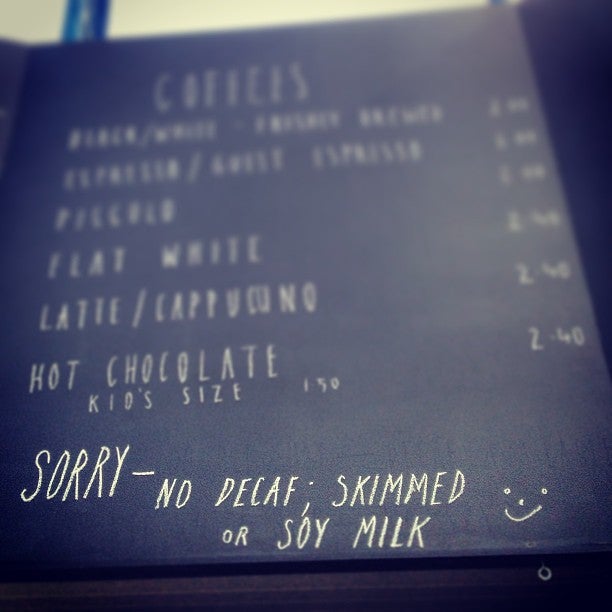 COFFEES
BLACK/WHITE - FRESHLY BREWED 2.00
ESPRESSO/GUEST ESPRESSO 2.00
PICCOLO 2.00
FLAT WHITE 2.40
LATTE/CAPPUCCINO 2.40
HOT CHOCOLATE 2.40
KID'S SIZE 1.50
SORRY- NO DECAF; SKIMMED
OR SOY MILK